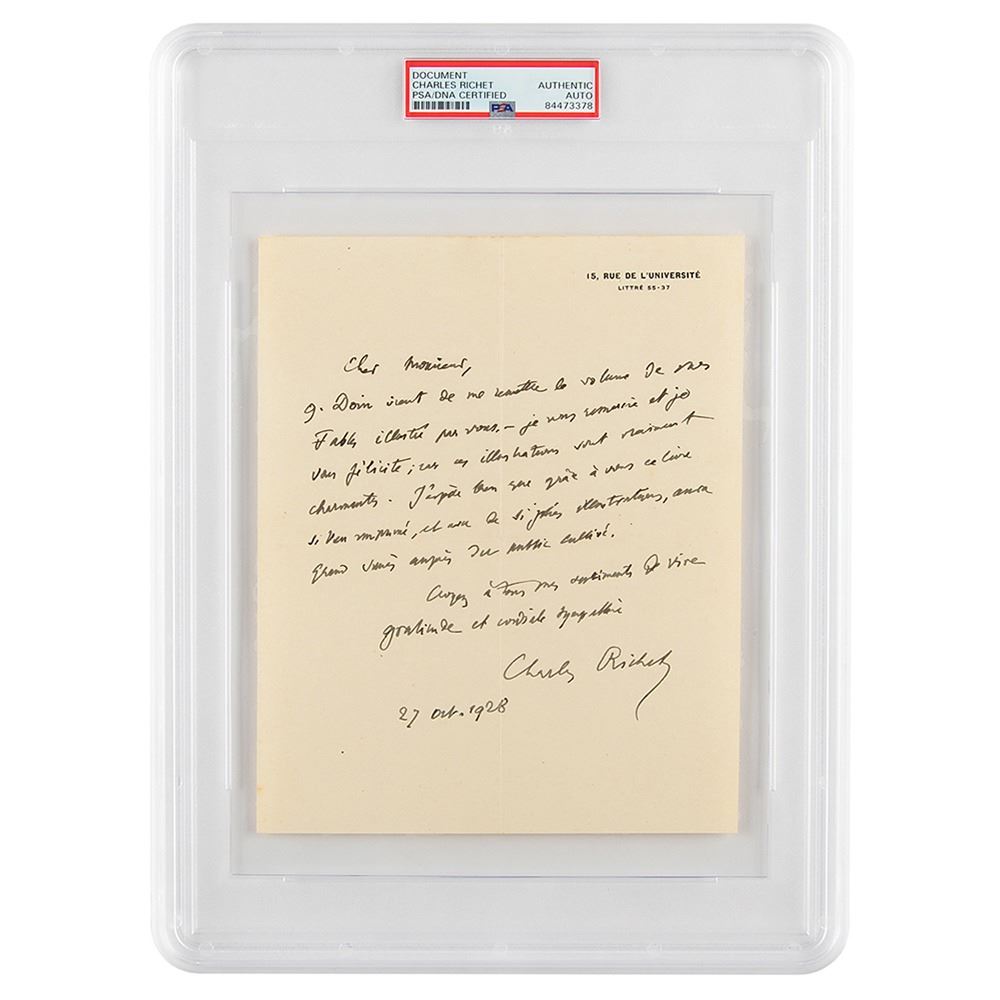 DOCUMENT
CHARLES RICHET
PSA/DNA CERTIFIED
AUTHENTIC
AUTO
84473378
PSA
15, RUE DE L'UNIVERSITÉ
LITTRÉ 55-37
Cher Monsieur,
G. Doin vient de me remettre le volume de mes
Fables illustré par vous. – je vous remercie et je
vous félicite; car ces illustrations sont vraiment
charmantes. J'espère bien que grâce à vous ce livre
si bien imprimé, et avec de si jolies illustrations, aura
grand succès auprès du public cultivé.
Croyez à tous mes sentiments de vive
gratitude et cordiale sympathie
Charles Richet
27 oct. 1928